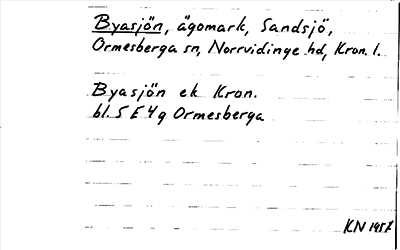 Byasjön, ägomark, Sandsjö,
Ormesberga sn, Norrvidinge hd, Kron. l.
Byasjön ek Kron.
bl. 5 E 4 g Ormesberga
KN 1957